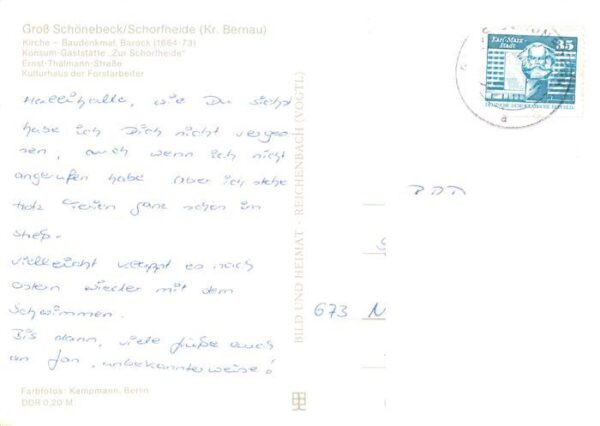 Groß Schönebeck/Schorfheide (Kr. Bernau)
Kirche – Baudenkmal, Barock (1664-73)
Konsum-Gaststätte „Zur Schorfheide"
Ernst-Thälmann-Straße
Kulturhaus der Forstarbeiter
Hallihallo, wie Du siehst
habe ich Dich nicht verges-
sen, auch wenn ich nicht
angerufen habe. Aber ich stehe
trotz Ferien ganz schön im
Streß.
Vielleicht klappt es nach
Ostern wieder mit dem
Schwimmen.
Bis dann, viele Grüße auch
an Jan, unbekannterweise!
Farbfotos: Kempmann, Berlin
DDR 0,20 M
BILD UND HEIMAT · REICHENBACH (VOGTL)
Karl-Marx-
Stadt
35
DEUTSCHE DEMOKRATISCHE REPUBLIK
a
673 N